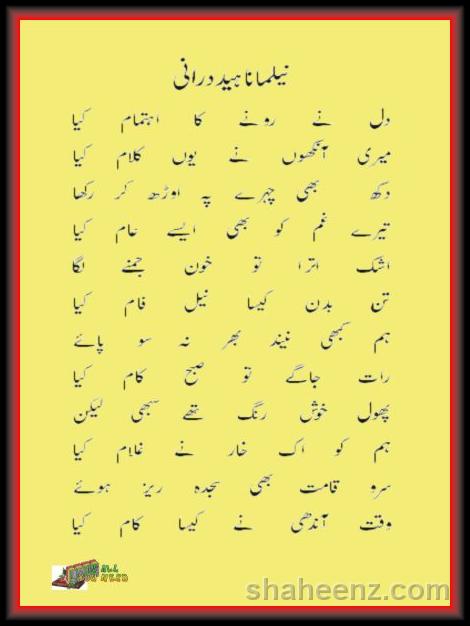 نیلما ناہید درانی
دل نے رونے کا اہتمام کیا
میری آنکھوں نے یوں کلام کیا
دکھ بھی چہرے پہ اوڑھ کر رکھا
تیرے غم کو بھی ایسے عام کیا
اشک اترا تو خون جمنے لگا
تن بدن کیسا نیل فام کیا
ہم کبھی نیند بھر نہ سو پائے
رات جاگے تو صبح کام کیا
پھول خوش رنگ تھے سبھی لیکن
ہم کو اک خار نے غلام کیا
سرو قامت بھی سجدہ ریز ہوئے
وقت آندھی نے کیسا کام کیا
ALL
YOU NEED
shaheenz.com